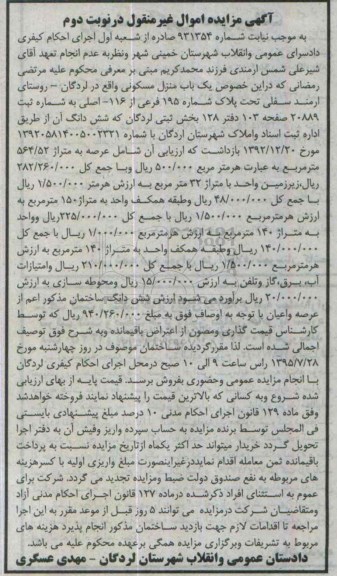 آگهی مزایده اموال غیرمنقول درنوبت دوم
به موجب نیابت شماره ۹۳۱۳۵۴ صادره از شعبه اول اجرای احکام کیفری
دادسرای عمومی وانقلاب شهرستان خمینی شهر ونظربه عدم انجام تعهد آقای
شیرعلی شمس ارمندی فرزند محمدکریم مبنی بر معرفی محکوم علیه مرتضی
رمضانی که دراین خصوص یک باب منزل مسکونی واقع در لردگان – روستای
ارمند سفلی تحت پلاک شماره ۱۹۵ فرعی از ۱۱۶- اصلی به شماره ثبت
۲۰۸۸۹ صفحه ۱۰۳ دفتر ۱۲۸ بخش ثبتی لردگان که شش دانگ آن از طریق
اداره ثبت اسناد واملاک شهرستان لردگان با شماره ۱۳۹۲۰۵۸۱۴۰۰۵۰۰۲۳۲۱
مورخ ۱۳۹۲/۱۲/۲۰ بازداشت که ارزیابی آن شامل عرصه به متراژ ۵۶۴/۵۲
مترمربع به عبارت هرمتر مربع ۵۰۰/۰۰۰ ریال وبا جمع کل ۲۸۲/۲۶۰/۰۰۰
ریال،زیرزمین واحد با متراژ ۳۲ متر مربع به ارزش هرمتر ۱/۵۰۰/۰۰۰ ریال
با جمع کل ۴۸/۰۰۰/۰۰۰ ریال وطبقه همکف واحد به متراژ ۱۵۰ مترمربع به
ارزش هرمترمربع ۱/۵۰۰/۰۰۰ ریال با جمع کل ۲۲۵/۰۰۰/۰۰۰ریال وواحد
به متراژ ۱۴۰ مترمربع به ارزش هرمترمربع ۱/۰۰۰/۰۰۰ ریال با جمع کل
۱۴۰/۰۰۰/۰۰۰ ریال وطبقه همکف واحد به متراژ ۱۴۰ مترمربع به ارزش
هرمترمربع ۱/۵۰۰/۰۰۰ ریال با جمع کل ۲۱۰/۰۰۰/۰۰۰ ریال وامتیازات
آب، برق،گاز وتلفن به ارزش ۱۵/۰۰۰/۰۰۰ ریال ومحوطه سازی به ارزش
۲۰/۰۰۰/۰۰۰ ریال برآورد می شود ارزش شش دانگ ساختمان مذکور اعم از
عرصه واعیان با توجه به اوصاف فوق به مبلغ ۹۴۰/۲۶۰/۰۰۰ ریال که توسط
کارشناس قیمت گذاری ومصون از اعتراض باقیمانده وبه شرح فوق توصیف
اجمالی شده است. لذا مقررگردیده ساختمان موصوف در روز چهارشنبه مورخ
۱۳۹۵/۷/۲۸ راس ساعت ۹ الی ۱۰ صبح درمحل اجرای احکام کیفری لردگان
با انجام مزایده عمومی وحضوری بفروش برسد. قیمت پایه از بهای ارزیابی
شده شروع وبه کسانی که بالاترین قیمت را پیشنهاد نمایند فروخته خواهدشد
وفق ماده ۱۲۹ قانون اجرای احکام مدنی ۱۰ درصد مبلغ پیشنهادی بایستی
فی المجلس توسط برنده مزایده به حساب سپرده واریز وفیش آن به دفتر اجرا
تحویل گردد خریدار میتواند حد اکثر یکماه ازتاریخ مزایده نسبت به پرداخت
باقیمانده ثمن معامله اقدام نمایددرغیراینصورت مبلغ واریزی اولیه با کسرهزینه
های مربوطه به نفع صندوق دولت ضبط ومزایده تجدید می گردد. شرکت برای
عموم به استثنای افراد ذکرشده درماده ۱۲۷ قانون اجرای احکام مدنی آزاد
ومتقاضیان شرکت درمزایده می توانند ۵ روز قبل از موعد مقرر به این اجرا
مراجعه تا اقدامات لازم جهت بازدید ساختمان مذکور انجام پذیرد هزینه های
مربوط به تشریفات وبرگزاری مزایده همگی برعهده محکوم علیه می باشد.
دادستان عمومی وانقلاب شهرستان لردگان – مهدی عسکری